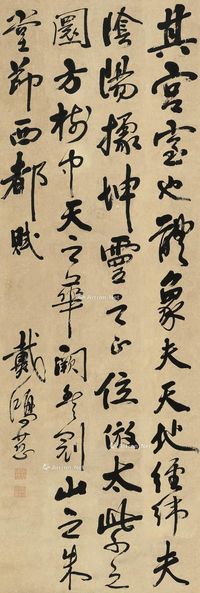 其宮室也體象夫天地經緯夫
陰陽據坤靈之正位倣太紫之
圜方樹中天之華闕豐冠山之朱
堂節西都賦
戴鴻慈